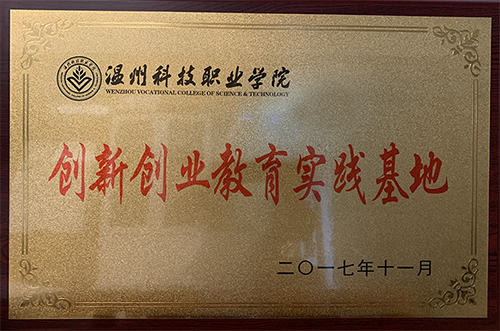 温州科技职业学院
WENZHOU VOCATIONAL COLLEGE OF SCIENCE & TECHNOLOGY
创新创业教育实践基地
二〇一七年十一月